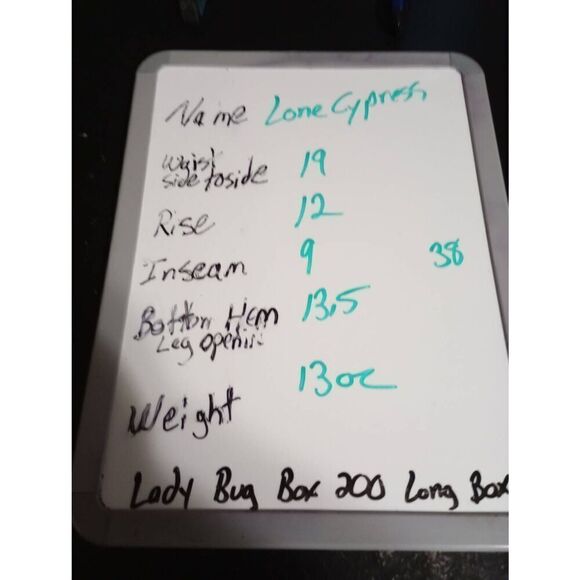 Name Lone Cypress
Waist
side to side 19
Rise 12
Inseam 9 38
Bottom Hem 13.5
Leg opening
Weight 13 oz
Lady Bug Box 200 Long Box